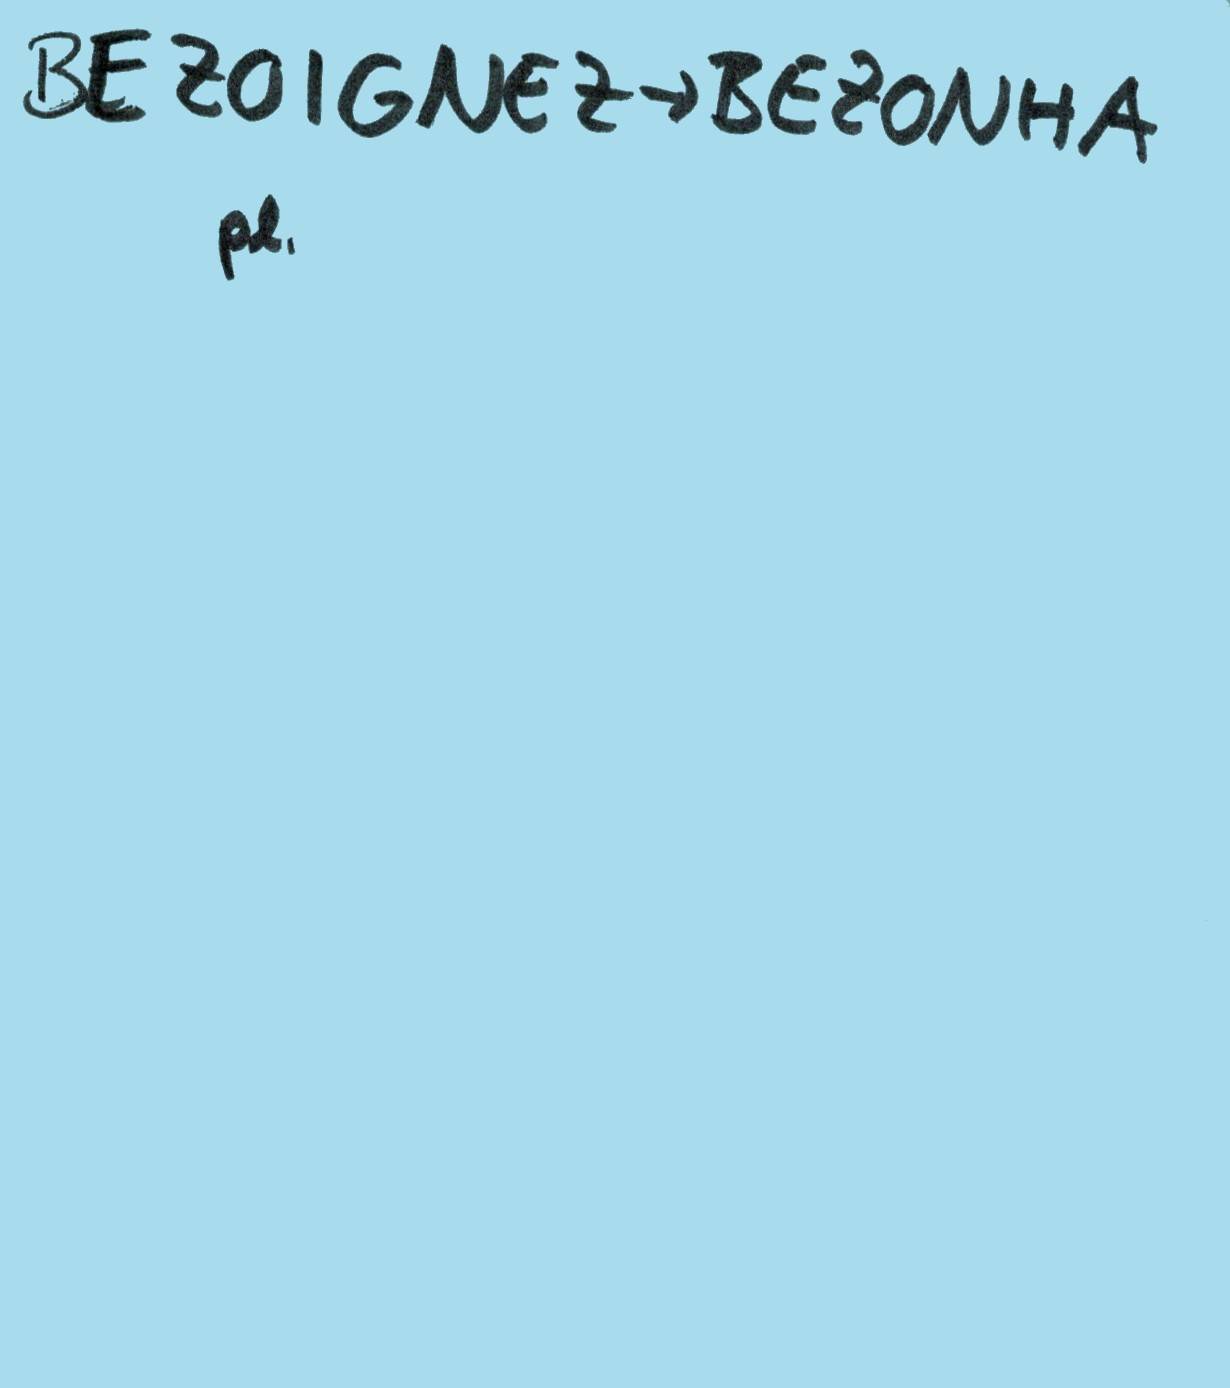 BEZOIGNEZ→BEZONHA
pl.